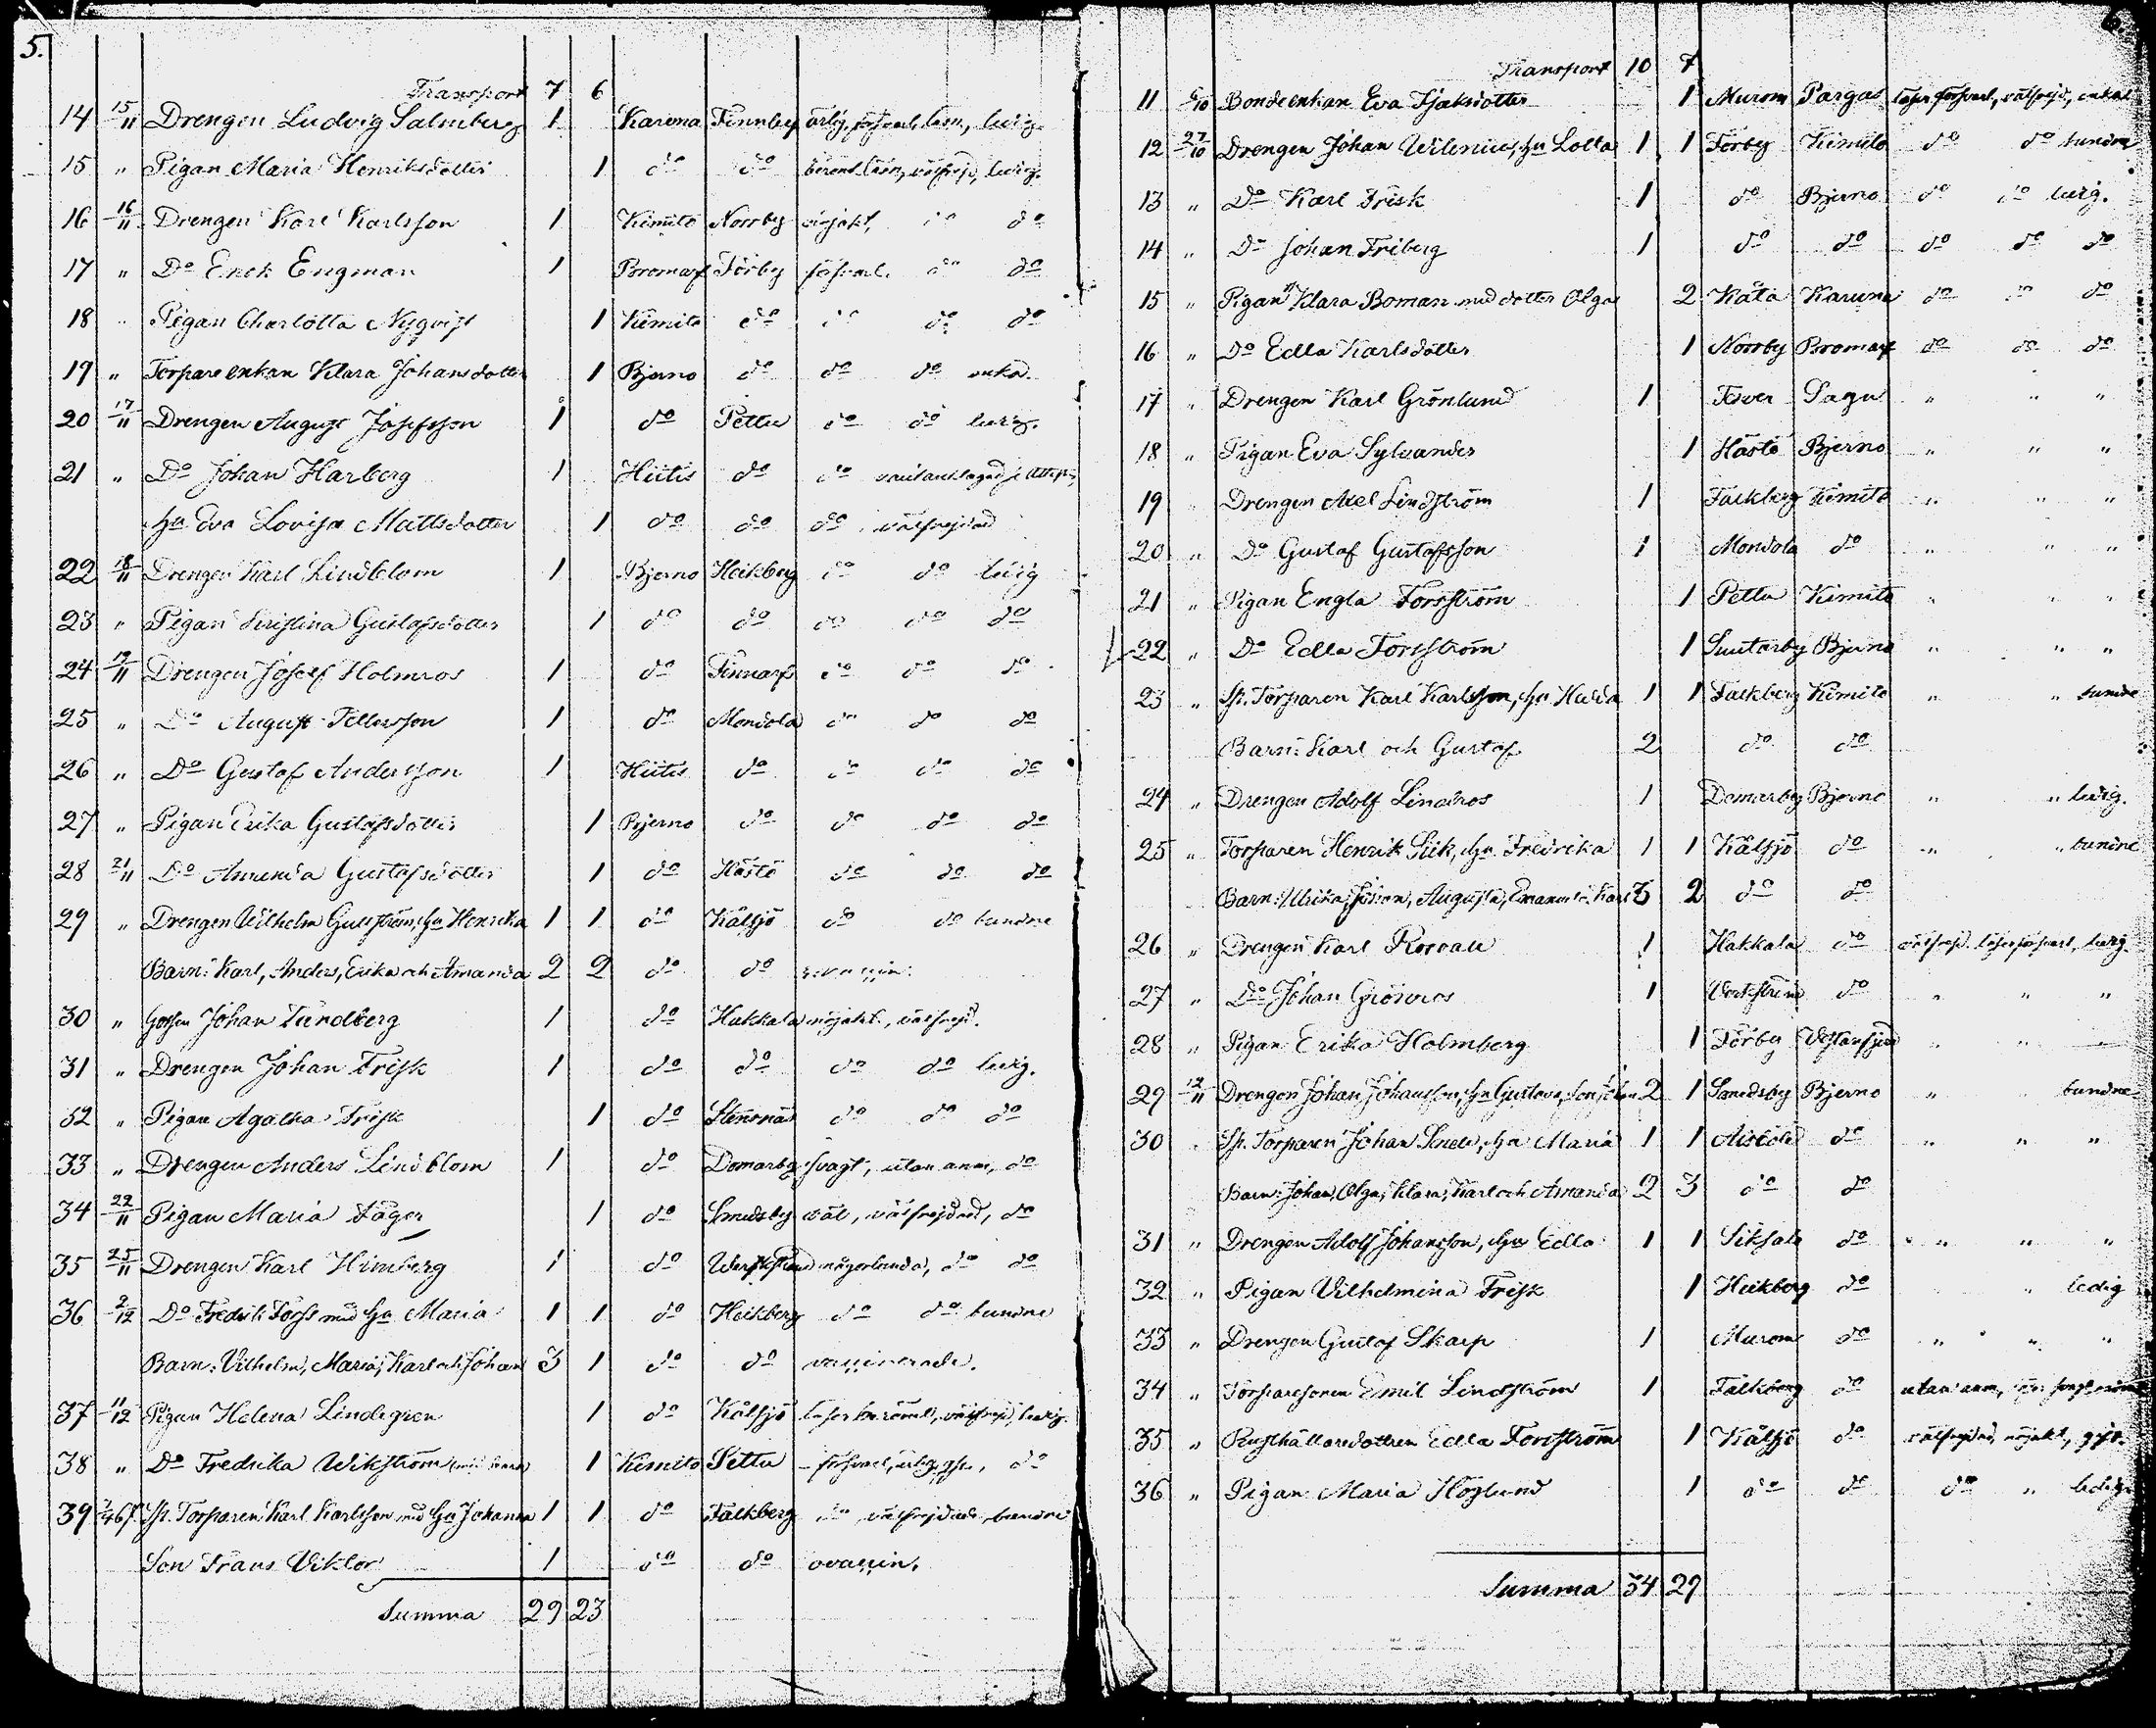 5.
Transport 7 6
14 15/11 Drengen Ludvig Salmberg 1 Karuna Finnby ärlig, ledig.
15 " Pigan Maria Henriksdotter 1 do do ledig.
16 16/11 Drengen Karl Karlsson 1 Kimito Norrby nöjakt, do do
17 " Do Erick Engman 1 Bromarf Förby försvarl. do do
18 " Pigan Charlotta Nyqvist 1 Kimito do do do do
19 " Torpareenkan Klara Johansdotter 1 Bjerno do do do enka.
20 17/11 Drengen August Josefsson 1 do Pettu do do ledig.
21 " Do Johan Harberg 1 Hitis do do
hu Eva Lovisa Mattsdotter 1 do do do välfrejdad
22 18/11 Drengen Karl Lindblom 1 Bjerno Heikberg do do ledig
23 " Pigan Kristina Gustafsdotter 1 do do do do do
24 19/11 Drengen Josef Holmros 1 do Finnarf do do do
25 " Do August 1 do Mondola do do do
26 " Do Gustaf Andersson 1 Hitis do do do do
27 " Pigan Erika Gustafsdotter 1 Bjerno do do do do
28 21/11 Do Amanda Gustafsdotter 1 do Hästö do do do
29 " Drengen Wilhelm hu Henrika 1 1 do Kålsjö do do bundne
Barn: Karl, Anders, Erika och Amanda 2 2 do do
30 " Gossen Johan Lundberg 1 do Hakkala nöjakt., välfrejd.
31 " Drengen Johan Frisk 1 do do do do ledig.
32 " Pigan Agatha Frisk 1 do Stensnäs do do do
33 " Drengen Anders Lindblom 1 do Domarby svagt, utan anm, do
34 22/11 Pigan Maria Fager 1 do Smedsby väl, välfrejdad, do
35 25/11 Drengen Karl Himberg 1 do någorlunda, do do
36 2/12 Do Fredrik Forss med hu Maria 1 1 do Heikberg do do bundne
Barn: Vilhelm, Maria, Karl och Johan 3 1 do do vaccinerade.
37 11/12 Pigan Helena Lindegren 1 do Kålsjö läser berömml, välfrejd, ledig.
38 " Do Fredrika Wikström 1 Kimito Pettu försvarl, do
39 Sp. Torparen Karl Karlsson med hu Johanna 1 1 do Falkberg do välfrejdade, bundne
Son Frans Viktor 1 do do ovaccin.
Summa 29 23
Transport 10 7
11 6/10 Bondeenkan Eva 1 Murom Pargas läser försvarl, välfrejd, enka
12 27/10 Drengen Johan Wilenius, hu Lotta 1 1 Förby Kimito do do bundne
13 " Do Karl Frisk 1 do Bjerno do do ledig.
14 " Do Johan Friberg 1 do do do do do
15 " Pigan Klara Boman med dotter Olga 2 Karuna do do do
16 " Do Edla Karlsdotter 1 Norrby Bromarf do do do
17 " Drengen Karl Grönlund 1 Sagu " " "
18 " Pigan Eva Sylvander 1 Hästö Bjerno " " "
19 " Drengen Axel Lindström 1 Falkberg Kimito " " "
20 " Do Gustaf Gustafsson 1 Mondola do " " "
21 " Pigan Engla Forsström 1 Pettu Kimito " " "
22 " Do Edla Forsström 1 Bjerno " " "
23 " Sp. Torparen Karl Karlsson, hu Hulda 1 1 Falkberg Kimito " " bundne
Barn: Karl och Gustaf 2 do do
24 " Drengen Adolf Lindros 1 Domarby Bjerno " " ledig.
25 " Torparen Henrik hu Fredrika 1 1 Kålsjö do " " bundne
Barn: Ulrika, Johan, Augusta, Emanuel o. Karl 3 2 do do
26 " Drengen Karl Rosvall 1 Hakkala do välfrejd. läser försvarl, ledig.
27 " Do Johan Grönros 1 do " " "
28 " Pigan Erika Holmberg 1 Förby Vestanfjerd " "
29 12/11 Drengen Johan Johansson, hu Gustava, son Johan 2 1 Smedsby Bjerno " bundne
30 " Sp. Torparen Johan hu Maria 1 1 do " " "
Barn: Johan, Olga, Klara, Karl och Amanda 2 3 do do
31 " Drengen Adolf Johansson, hu Edla 1 1 do " " "
32 " Pigan Vilhelmina Frisk 1 Heikberg do " ledig
33 " Drengen Gustaf Skarp 1 Murom do " " "
34 " Torparesonen Emil Lindström 1 Falkberg do utan anm,
35 " Rusthållaredottren Edla Forsström 1 Kålsjö do välfrejdad, nöjakt, gift.
36 " Pigan Maria Höglund 1 do do do " ledig
Summa 34 29